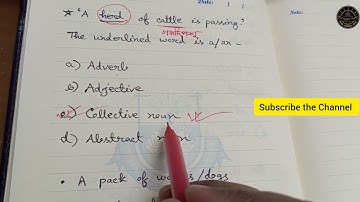 Date: / /
☆ "A herd of cattle is passing?
The underlined word is a/an -
a) Adverb
b) Adjective
c) Collective noun
d) Abstract noun
• A pack of wolves/dogs
Subscribe the Channel